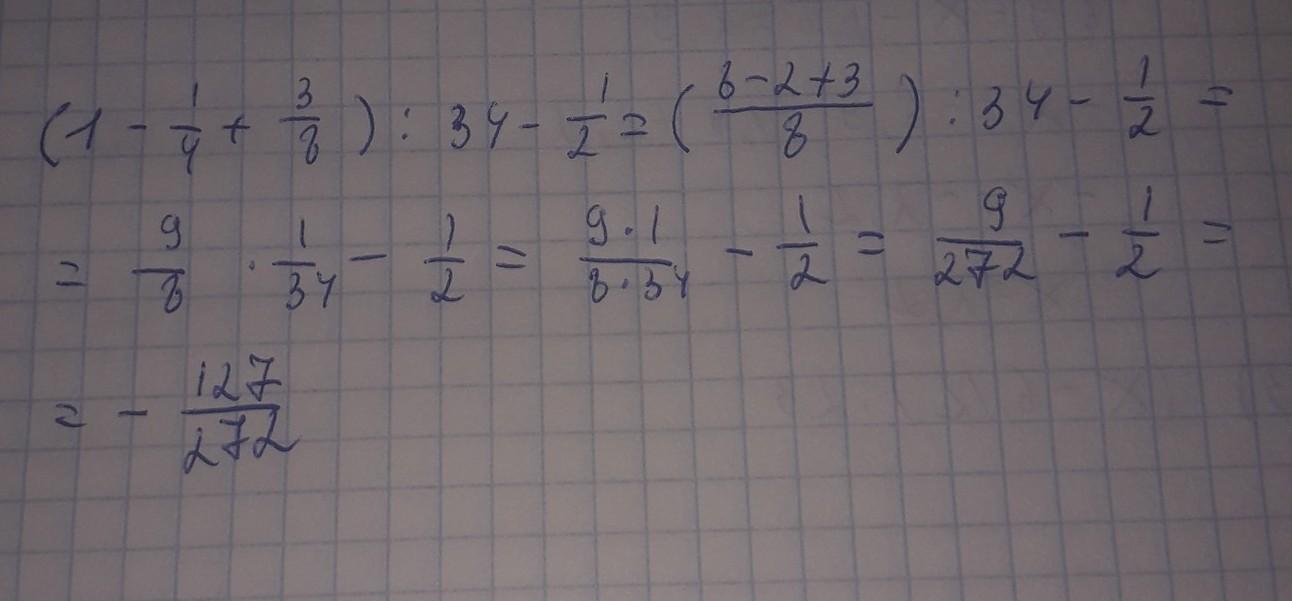 (1 - 1/4 + 3/8) : 34 - 1/2 = ((8-2+3)/8) : 34 - 1/2 =
= 9/8 · 1/34 - 1/2 = (9·1)/(8·34) - 1/2 = 9/272 - 1/2 =
= - 127/272